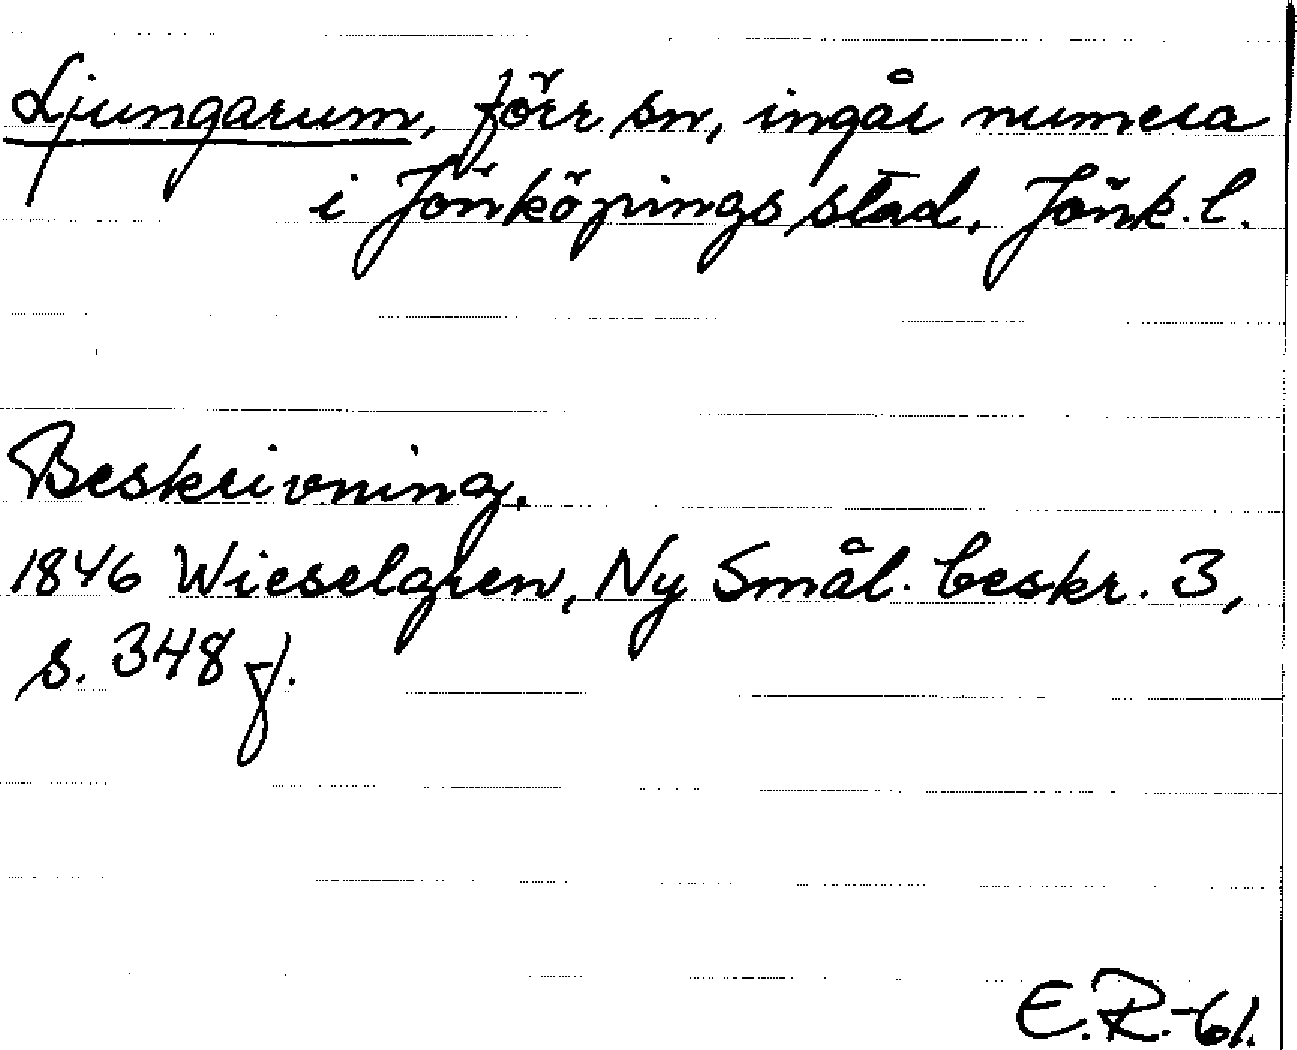 Ljungarum, förr sn, ingår numera
i Jönköpings stad, Jönk. l.
Beskrivning.
1846 Wieselgren, Ny Smål. beskr. 3,
s. 348 f.
E.R.-61.